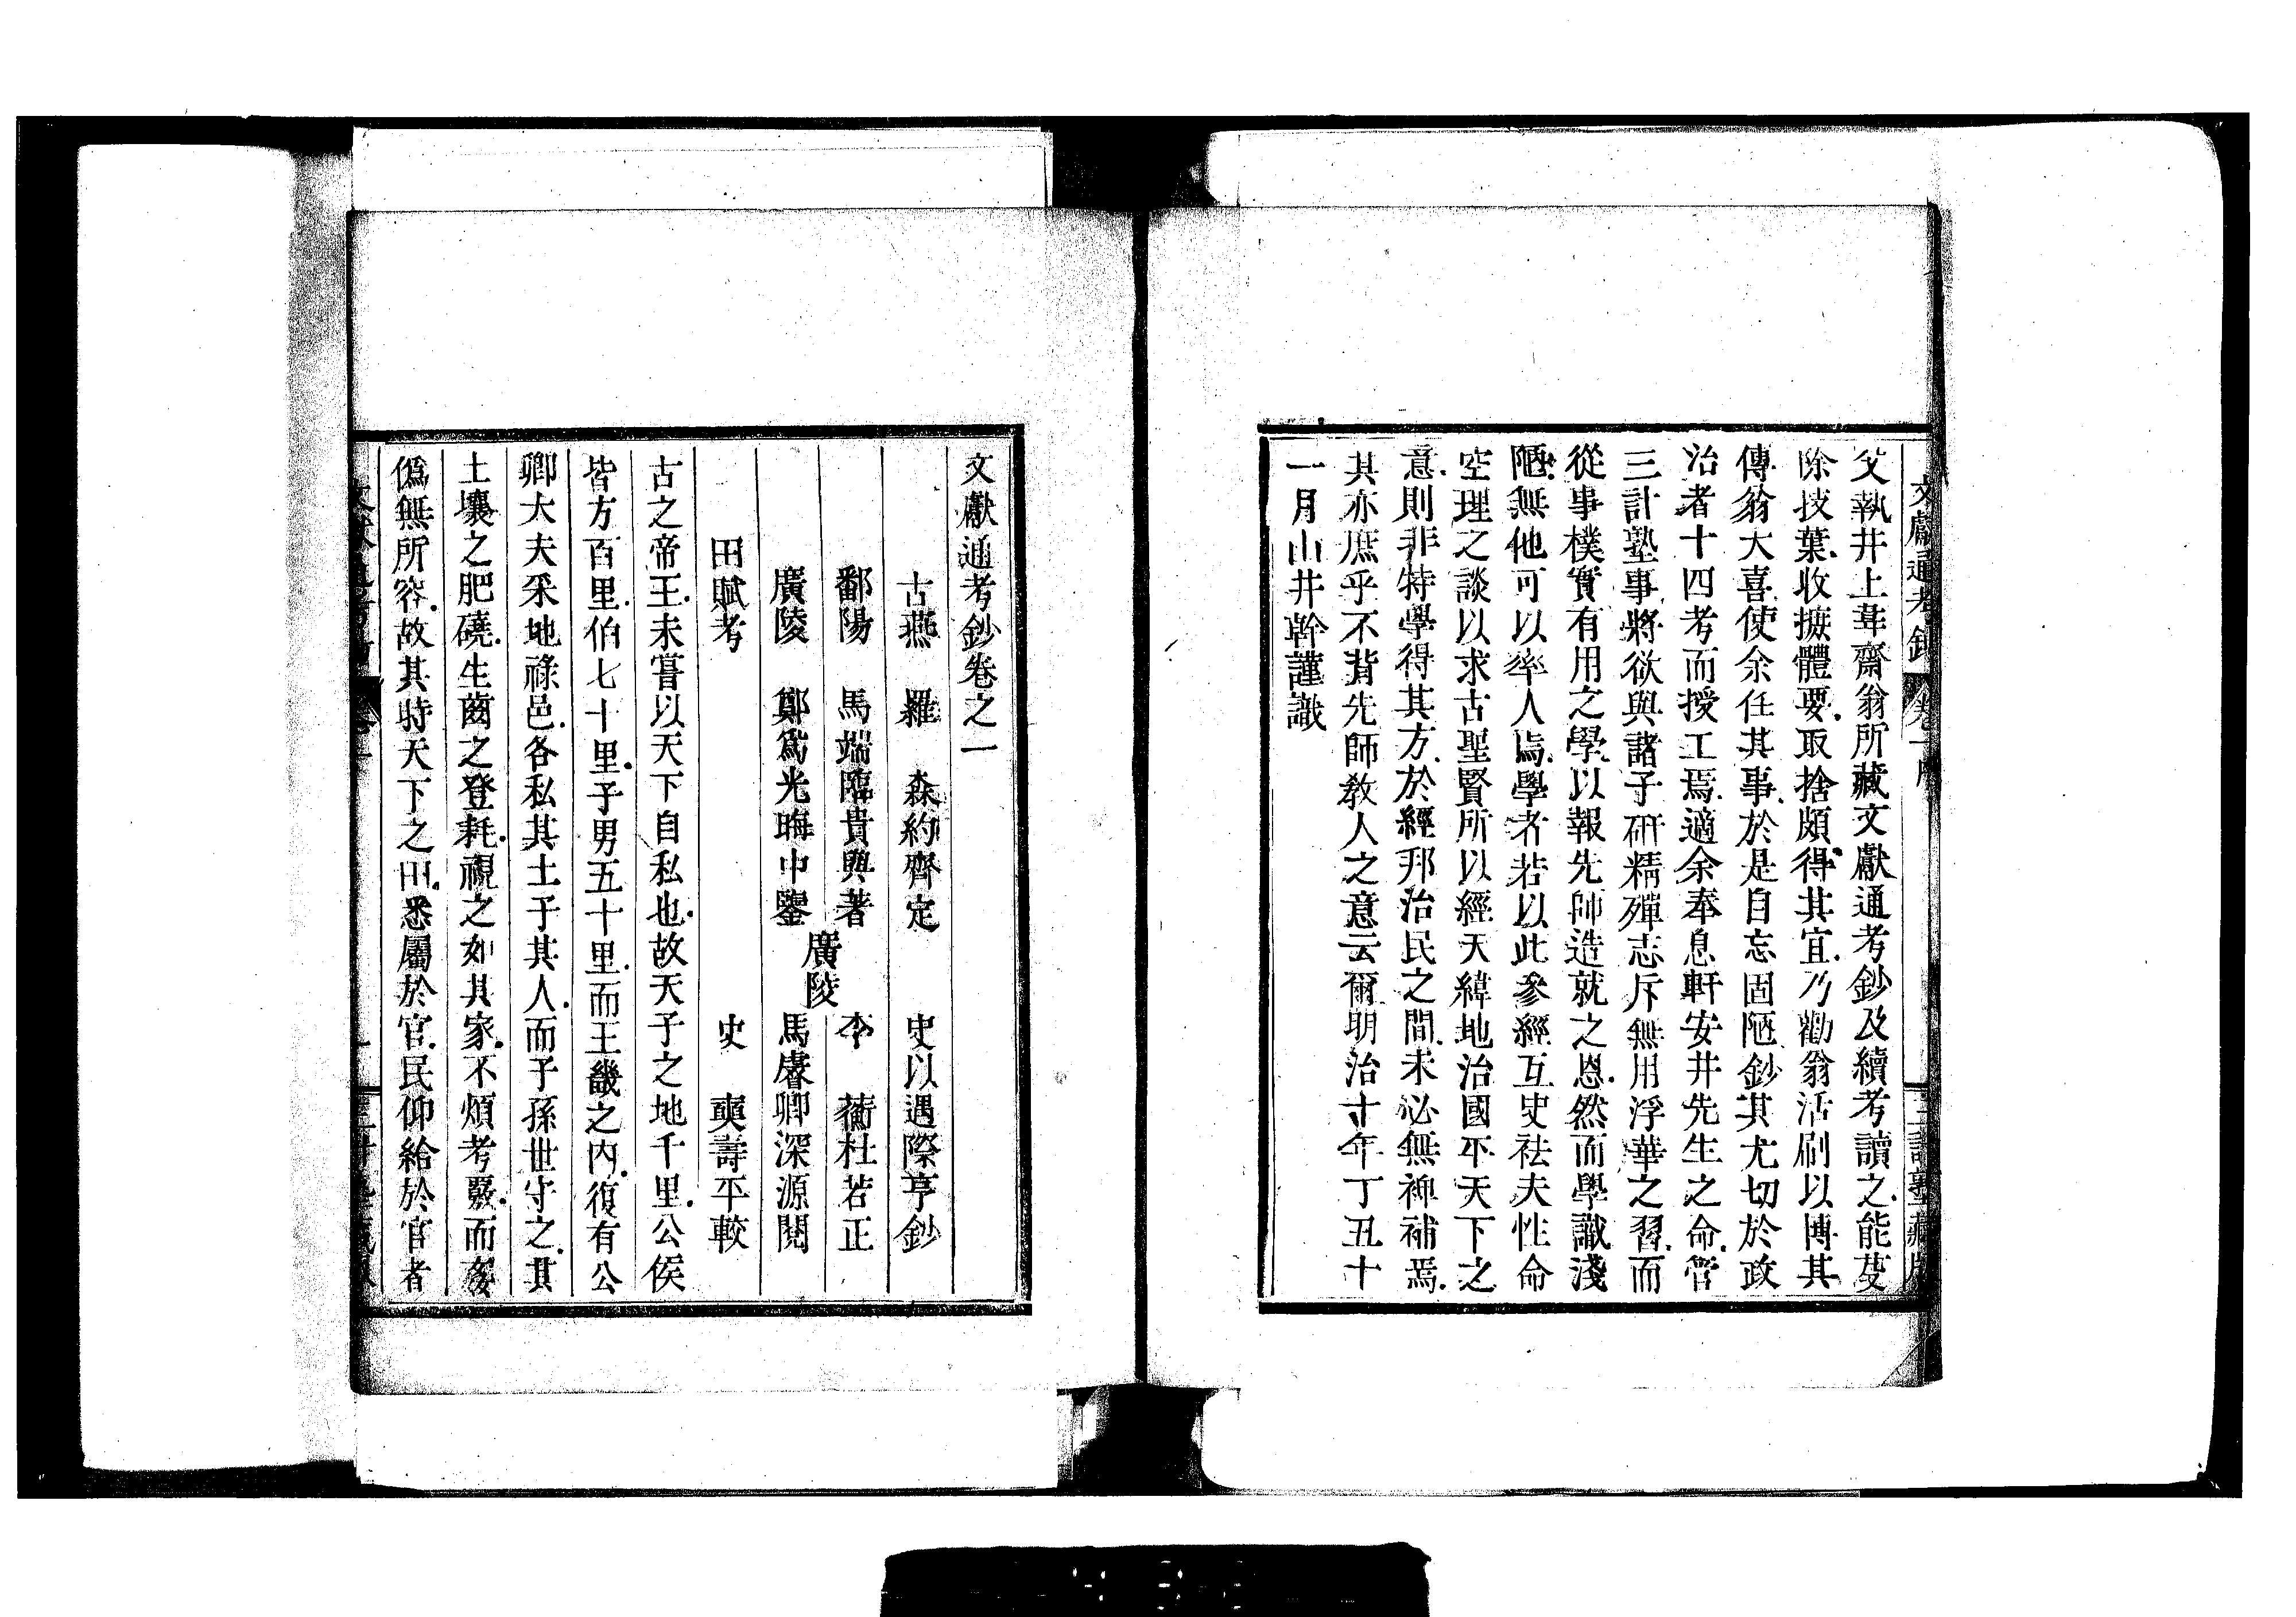 父執井上葦齋翁所藏文獻通考鈔及續考讀之能芟
除技葉收摭體要取捨頗得其宜乃勸翁活刷以博其
傳翁大喜使余任其事於是自忘固陋鈔其尤切於政
治者十四考而授工焉適余奉息軒安井先生之命管
三計塾事將欲與諸子研精殫志斥無用浮華之習而
從事樸實有用之學以報先師造就之恩然而學識淺
陋無他可以率人焉學者若以此參經互史祛夫性命
空理之談以求古聖賢所以經天緯地治國平天下之
意則非特學得其方於經邦治民之間未必無裨補焉
其亦庶乎不背先師教人之意云爾明治十年丁丑十
一月山井幹謹識
文獻通考鈔卷之一
古燕 羅 森約齊定 史以遇際亨鈔
鄱陽 馬端臨貴與著 廣陵 李 蘅杜若正
廣陵 鄭爲光晦中鑒 馬䜭卿深源閱
田賦考 史 奭壽平較
古之帝王未嘗以天下自私也故天子之地千里公侯
皆方百里伯七十里子男五十里而王畿之內復有公
卿大夫采地祿邑各私其土子其人而子孫世守之其
土壤之肥磽生齒之登耗視之如其家不煩考覈而姦
僞無所容故其時天下之田悉屬於官民仰給於官者